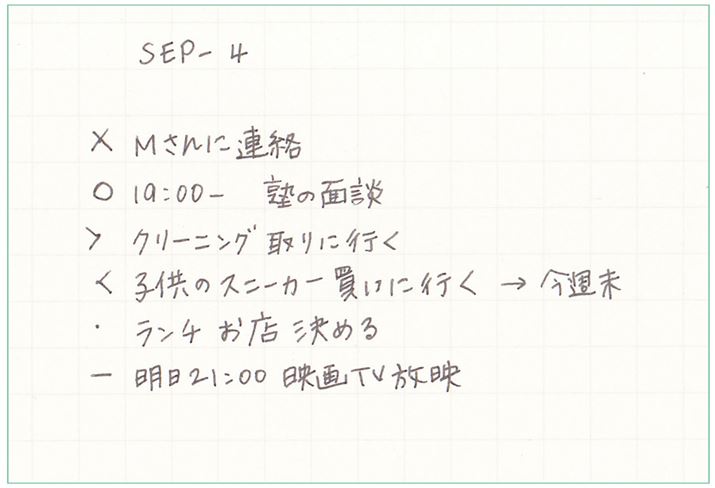 SEP-4
× Mさんに連絡
○ 19:00- 塾の面談
> クリーニング取りに行く
< 子供のスニーカー買いに行く → 今週末
・ ランチお店決める
- 明日21:00 映画TV放映